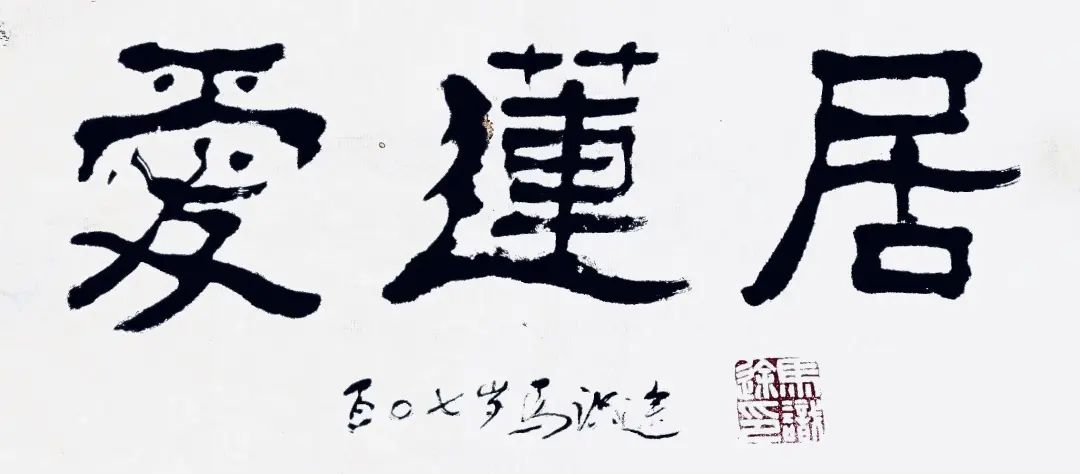 愛蓮居
百〇七岁马识途
馬識途印